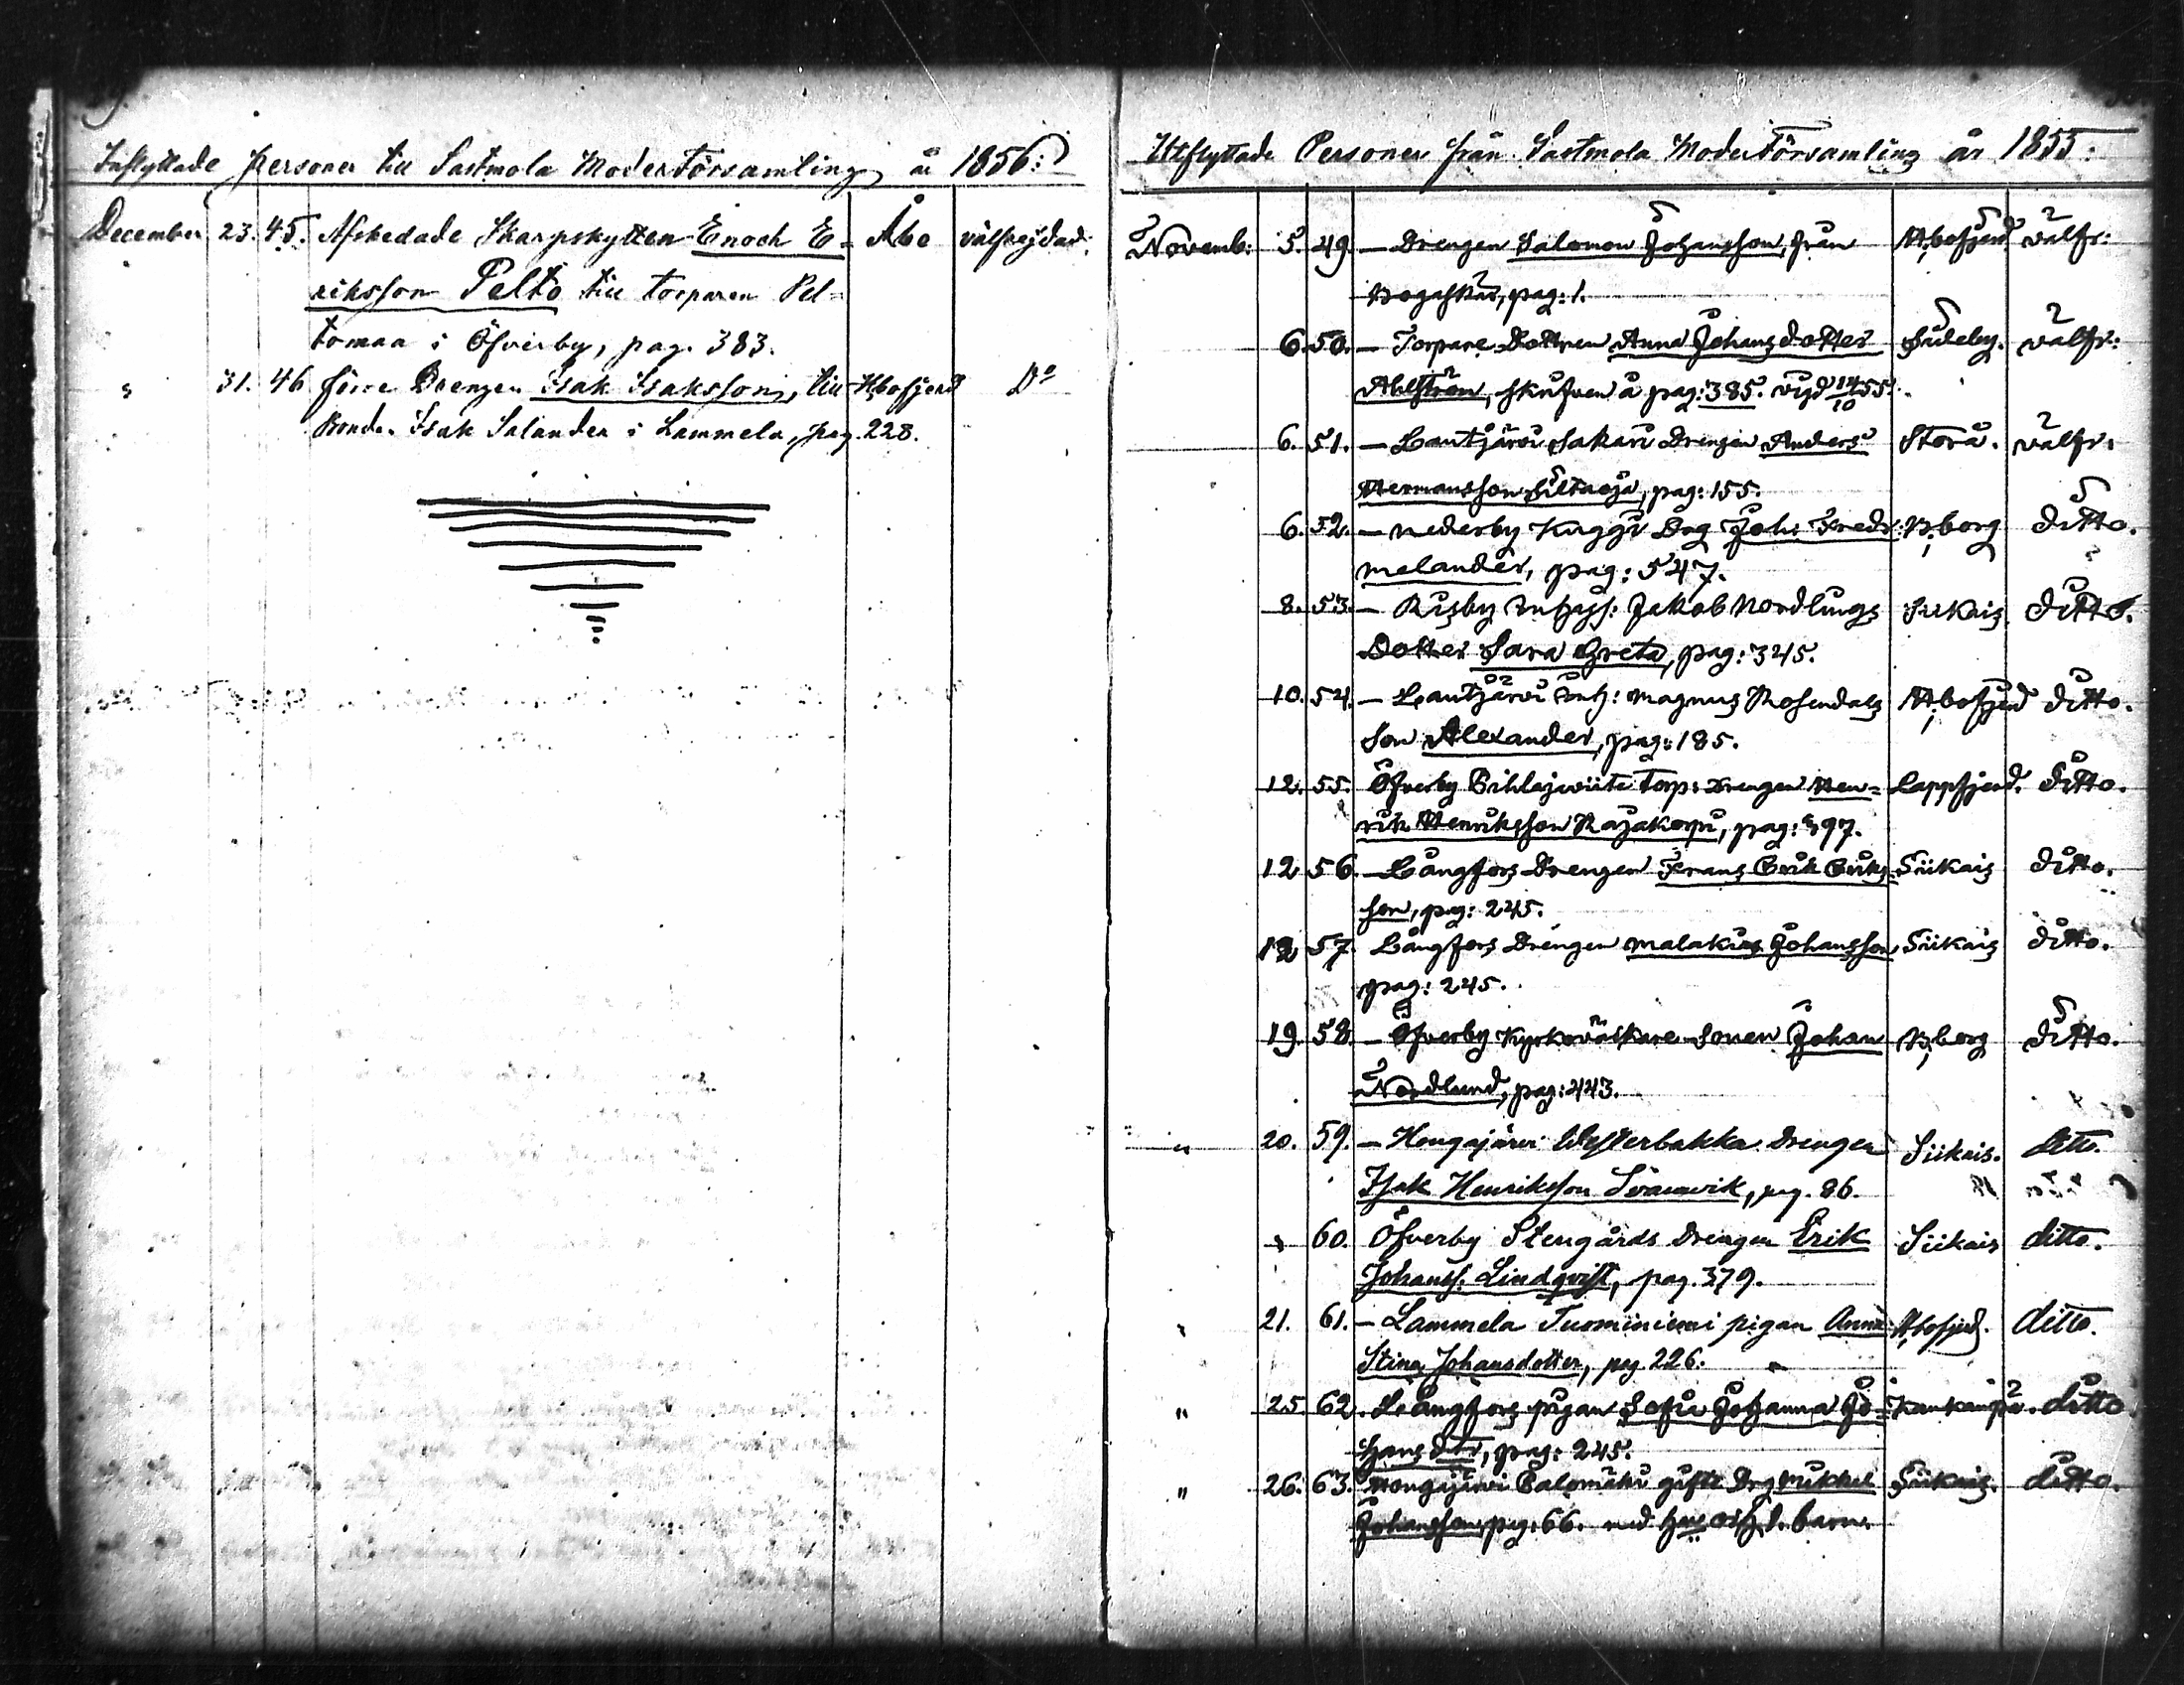 Inflyttade personer till Sastmola Moderförsamling år 1856:
December 23. 45. Afskedade Skarpskytten Enoch E- Åbo välfrejdad.
riksson Pelto till torparen Pel-
tomaa i Öfverby, pag. 383.
" 31. 46 förre Drengen Isak Isaksson, till Hbofjerd Do
Bonde Isak Salander i Lammela, pag. 228.
Utflyttade Personer från Sastmola Moderförsamling år 1855:
Novemb: 5. 49. — Drengen Salomon Johansson, från Hvbofjerd välfr:
pag: 1.
6. 50. — Torpare Dottren Anna Johansdotter Sideby. välfr:
Ahlström, skrifven å pag: 385. vigd 14/10 55.
6. 51. — Lautjärvi Sakari Drengen Anders Storå. välfr.
Hermansson Siltaoja, pag: 155.
6. 52. — Nederby Kuggi Drg Joh: Fredr: B:borg ditto.
Melander, pag: 547.
8. 53. — Riisby Inhyss: Jakob Nordlings Siikais ditto.
Dotter Sara Greta, pag: 345.
10. 54. — Lautjärvi Inh: Magnus Rosendals Hvbofjerd ditto.
Son Alexander, pag: 185.
12. 55. Öfverby Pihlajwiita Torp: Drengen Hen= Lappfjerd. ditto.
rik Henriksson Rajakorpi, pag: 397.
12 56. — Långfors Drengen Frans Erik Eriks- Siikais ditto.
son, pag: 245.
12 57. Långfors Drengen Malakias Johansson Siikais ditto.
pag: 245.
19. 58. — Öfverby Kyrkoväktare Sonen Johan B:borg ditto.
Nordlund, pag: 443.
" 20. 59. — Hongajärvi Westerbakka Drengen Siikais. ditto.
Isak Henriksson Svanvik, pag. 86.
" 60. Öfverby Stengårds Drengen Erik Siikais ditto.
Johanss. Lindqvist, pag. 379.
" 21. 61. — Lammela Tuominiemi pigan Anna Hvbofjerd. ditto.
Stina Johansdotter, pag 226.
" 25. 62. Långfors pigan Sofia Johanna Jo= Kankanpä. ditto
hans dtr, pag: 245.
" 26. 63. Hongajärvi Palomäki gifte Drg Mikkel Siikais. ditto.
Johansson, pag: 66. med hu barn.